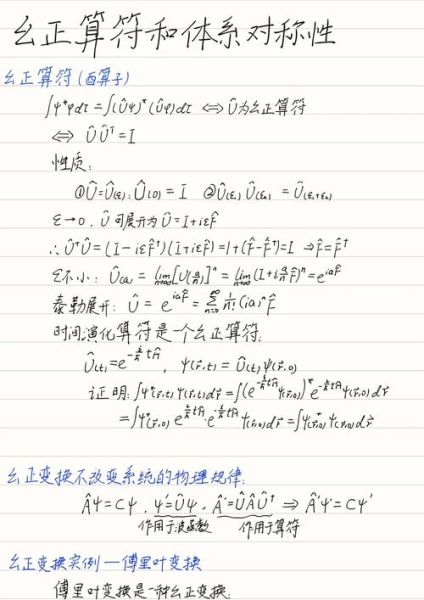 幺正算符和体系对称性
幺正算符(酉算子)
∫ψ*φdτ = ∫(Ûψ)*(Ûφ)dτ ⇔ Û为幺正算符
⇔ ÛÛ† = I
性质:
①Û=Û(ε), Û(0) = I ②Û(ε₁)Û(ε₂) = Û(ε₁+ε₂)
ε→0, Û可展开为Û=I+iεF̂
∴Û†Û=(I-iεF̂†)(I+iεF̂)=I+(F̂-F̂†)=I ⇒F̂=F̂†
ε不小: Û(a) = lim[U(a/n)]ⁿ = lim(I+i a/n F̂)ⁿ=e^{iaF̂}
泰勒展开: Û = e^{iaF̂} = Σ 1/n! (ia)ⁿF̂
时间演化算符是一个幺正算符:
Û(t)=e^{-i/ħ tĤ}, ψ(r⃗,t) = Û(t)ψ(r⃗,0)
证明: ∫ψ*(r⃗,t)ψ(r⃗,t)dr⃗=∫(e^{-i/ħ tĤ}ψ(r⃗,0))*e^{-i/ħ tĤ}ψ(r⃗,0)dr⃗
=∫ψ*(r⃗,0)e^{i/ħ tĤ}·e^{-i/ħ tĤ}ψ(r⃗,0)dr⃗=∫ψ*(r⃗,0)ψ(r⃗,0)dr⃗
幺正变换不改变系统的物理规律:
Âψ=Cψ, ψ'=Ûψ, Â'=ÛÂÛ† ⇒ Â'ψ'=Cψ'
作用于波函数 作用于算符
幺正变换实例—傅里叶变换
傅里叶变换是一种幺正变换: